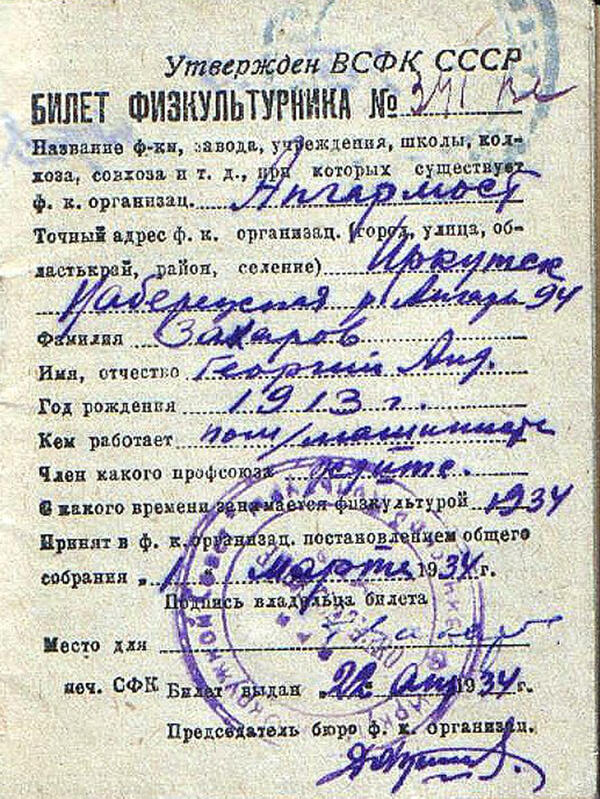 Утвержден ВСФК СССР
БИЛЕТ ФИЗКУЛЬТУРНИКА №
Название ф-ки, завода, учреждения, школы, кол-
хоза, совхоза и т. д., при которых существует
ф. к. организац. Ангармост
Точный адрес ф. к. организац. (город, улица, об-
ластькрай, район, селение) Иркутск
Набережная р. Ангары 94
Фамилия Захаров
Имя, отчество Георгий Анд.
Год рождения 1913 г.
Кем работает пом/машиниста
Член какого профсоюза
С какого времени занимается физкультурой 1934
Принят в ф. к. организац. постановлением общего
собрания „1 марта 1934 г.
Подпись владельца билета
Место для
печ. СФК Билет выдан „22 апр 1934 г.
Председатель бюро ф. к. организац.